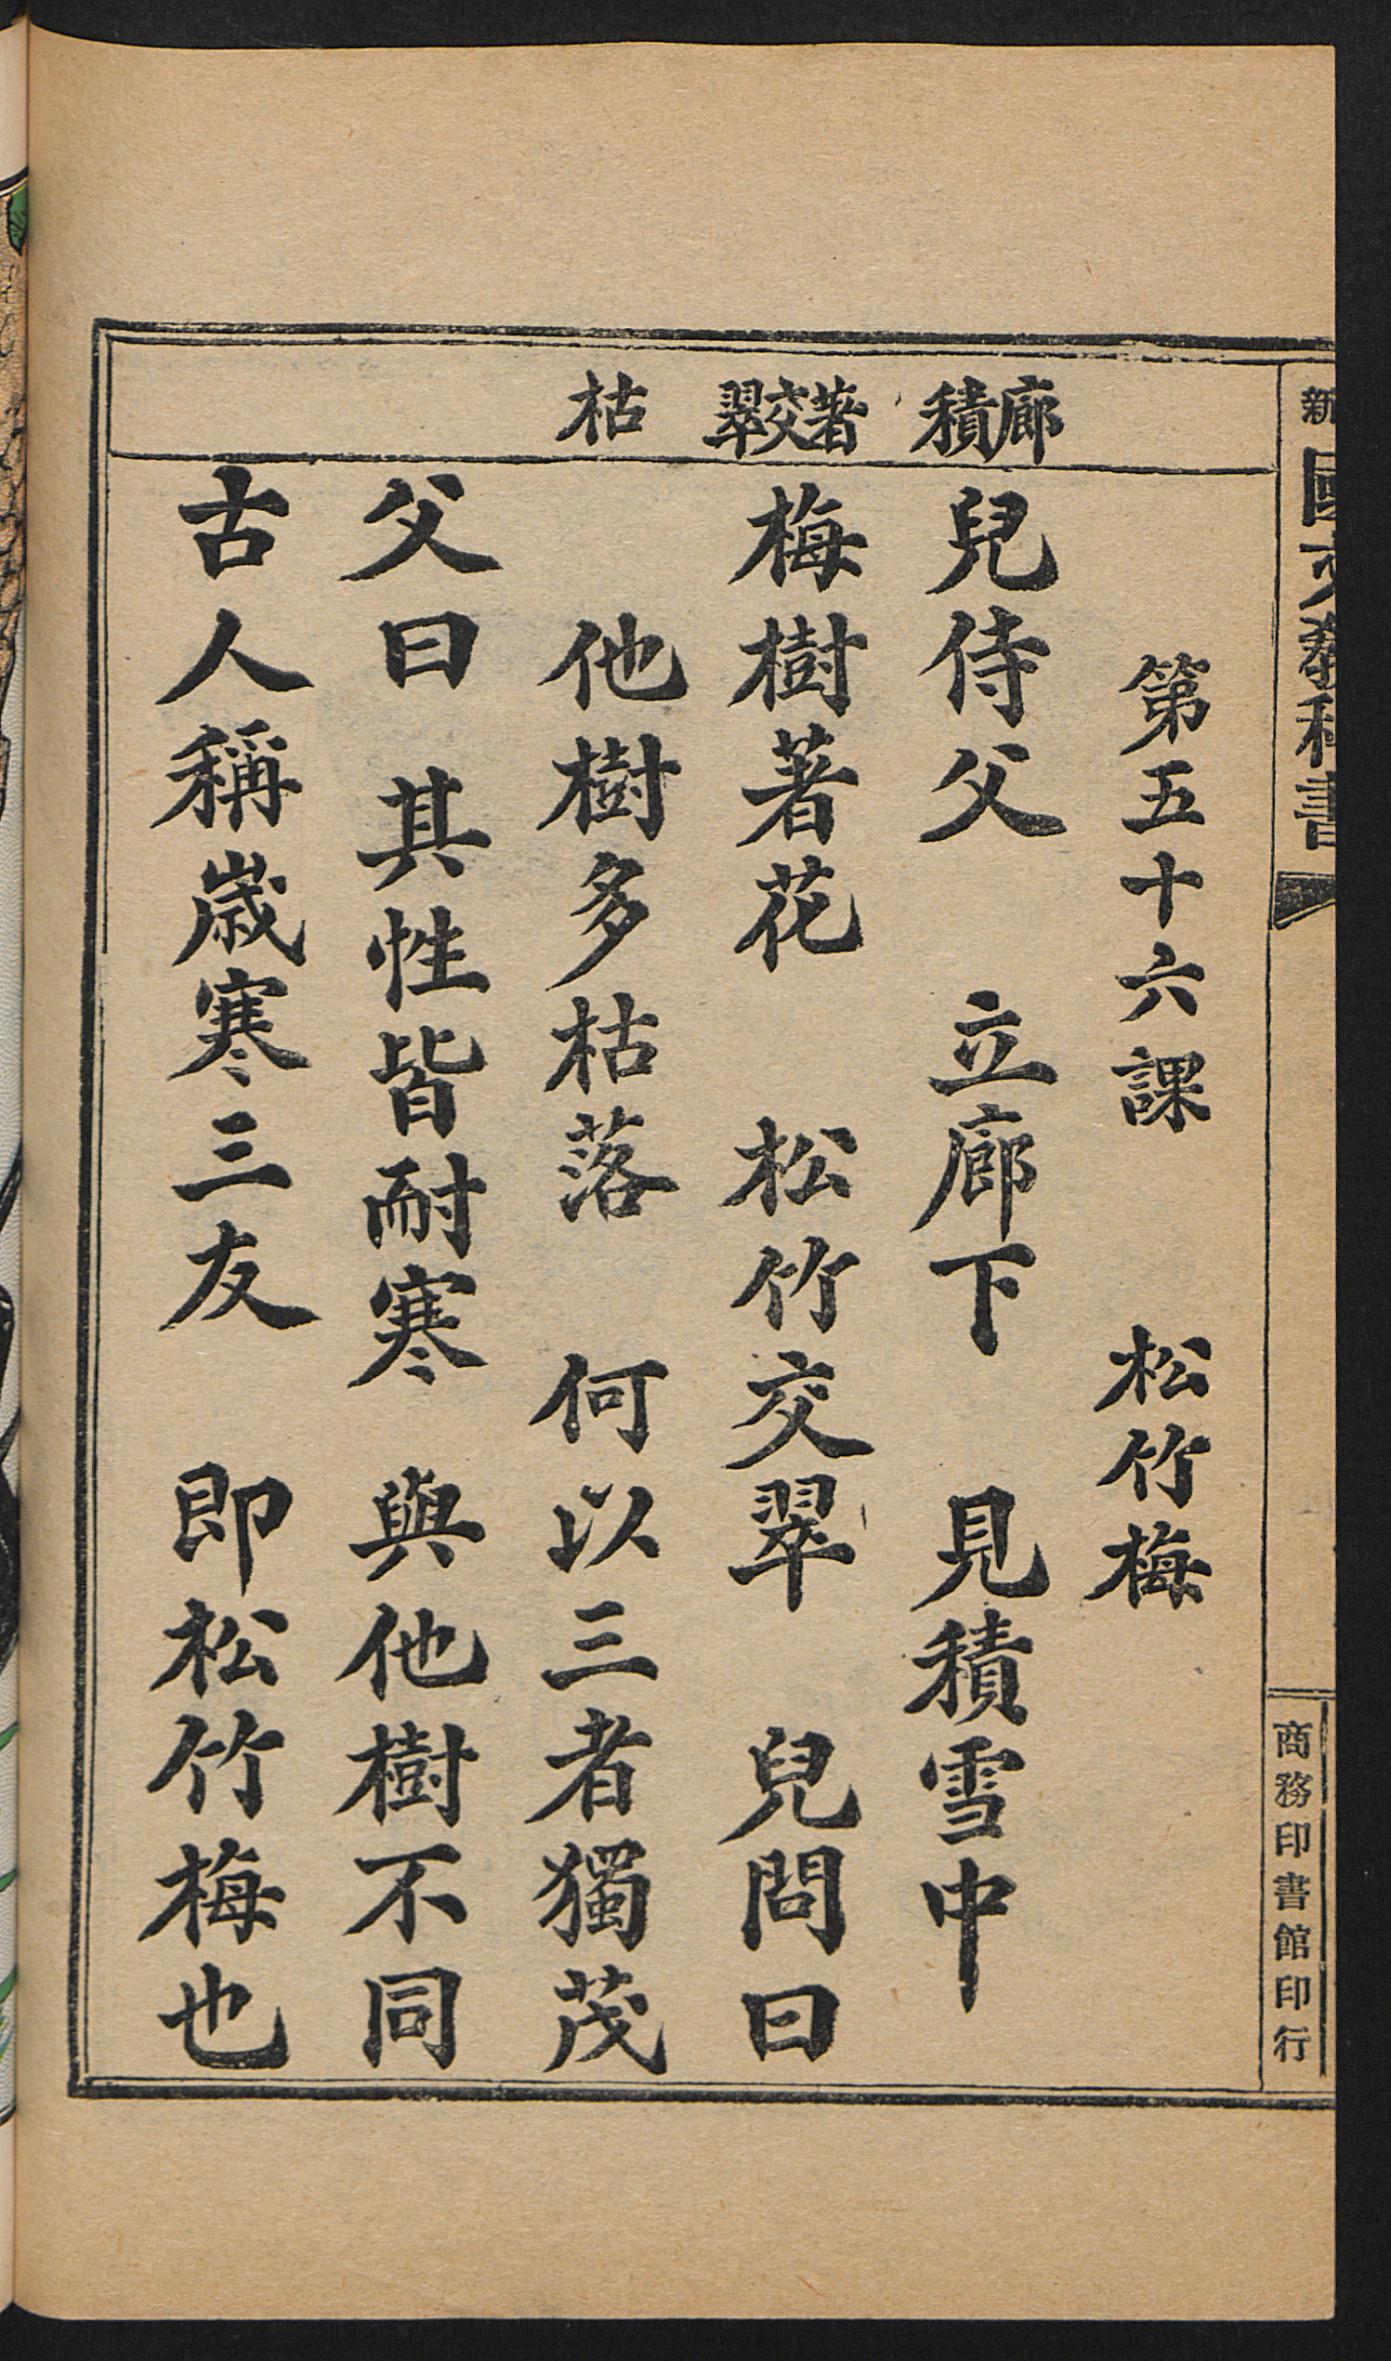 新國文教科書
商務印書館印行
第五十六課 松竹梅
廊積
著交翠
枯
兒侍父 立廊下 見積雪中
梅樹著花 松竹交翠 兒問曰
他樹多枯落 何以三者獨茂
父曰 其性皆耐寒 與他樹不同
古人稱歲寒三友 即松竹梅也